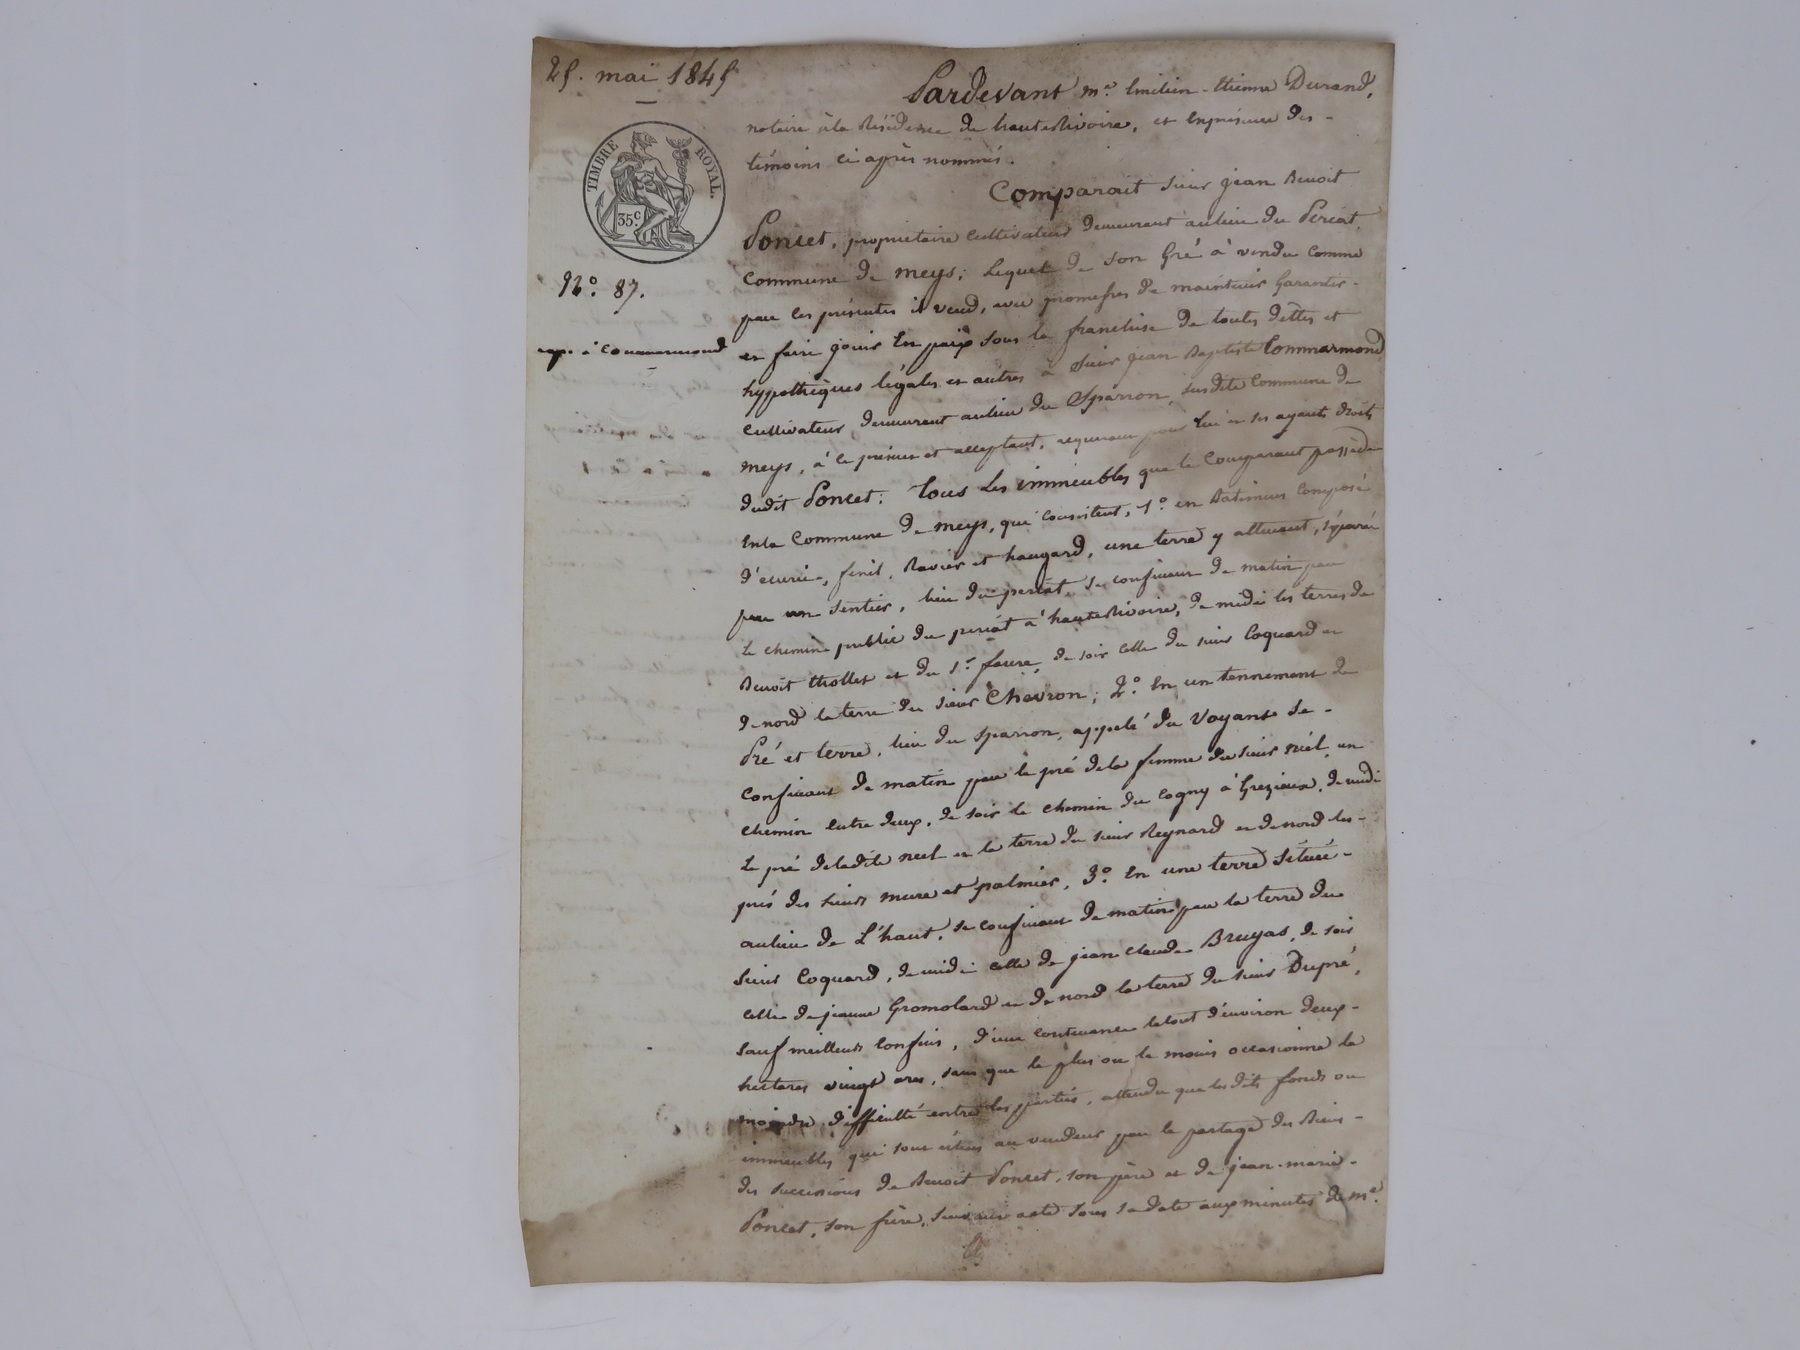 25. mai 1845
TIMBRE ROYAL.
35c.
N.o 87.
exp. à Commarmond
Pardevant me. Emilien-Etienne Durand,
notaire à la Résidence de hauterivoire, et enprésence des-
témoins ci après nommés.
Comparait sieur jean Benoit
Poncet, propriétaire cultivateur demeurant aulieu du Periat,
Commune de meys; Lequel de son Gré à vendu comme
par les présentes il vend, avec promesses de maintenir Garantir-
et faire jouir En paix sous la franchise de toutes dettes et
hypothèques légales et autres à Sieur jean Baptiste Commarmond,
cultivateur demeurant aulieu du Sparron, susdite Commune de
meys, à ce présent et acceptant, acquéreur pour lui et ses ayants droits
dudit Poncet: Tous les immeubles que le Comparant possède
Enla Commune de meys, qui consistent, 1.o en Batimens composés
d'écurie, fenil, Ravier et hangard, une terre y attenant, séparée
par un sentier, lieu du periat, se confinant de matin par
le chemin public du periat à hauterivoire, de midi les terres de
Benoit thollet et du Sr. faure, de soir celle du sieur Coquard et
de nord la terre du sieur Chevron; 2.o En un tennement de
Pré et terre, lieu du sparron, appelé du Voyant se-
confinant de matin par le pré dela femme du sieur niel, un
chemin entre deux, de soir le chemin du Cogny à Grezieux, de midi
le pré deladite neel et la terre du sieur Reynard et de nord les-
prés des sieurs mure et palmier, 3.o En une terre située-
aulieu de L'haut, se confinant de matin par la terre du
sieur Coquard, de midi celle de jean claude Bruyas, de soir
celle de jeanne Gromolard et de nord la terre du sieur Dupré,
sauf meilleurs confins, d'une contenance letout d'environ deux-
hectares vingt ares, sans que le plus ou le moins occasionne la
moindre difficulté entre les parties, attendu que lesdits fonds ou
immeubles qui sont échus au vendeur par le partage des Biens-
des successions de Benoit Poncet, son père et de jean-marie-
Poncet, son frère, suivant acte sous sa date aux minutes de me.